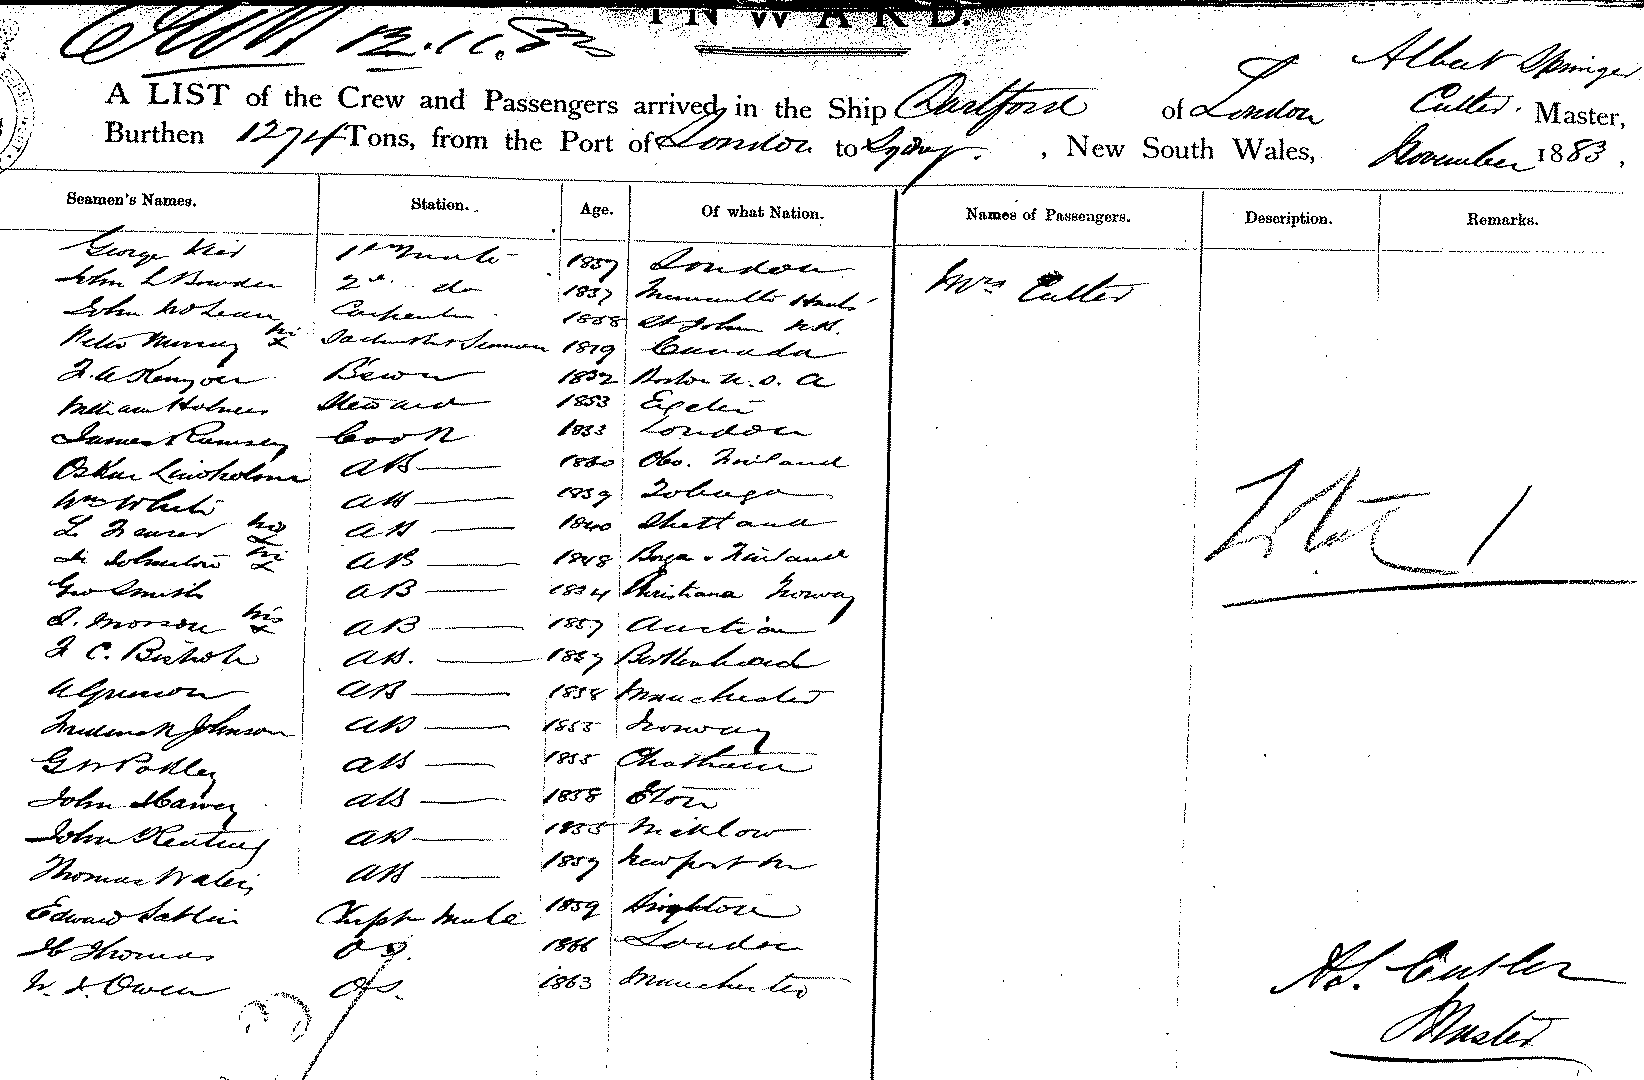 INWARD.
12.11.83
A LIST of the Crew and Passengers arrived in the Ship Dartford of London Albert Springer Cutler. Master,
Burthen 1274 Tons, from the Port of London to Sydney. , New South Wales, November 1883.
Seamen's Names. Station. Age. Of what Nation. Names of Passengers. Description. Remarks.
George 1st Mate 1857 London Mrs Cutler
John L Bowden 2d do 1857
John McLean Carpenter 1858 St John N.B.
Peter Murray his x 1819 Canada
Bosun 1832 Boston U.S.A
William Holmes Steward 1853 Exeter
James Ramsey Cook 1833 London
Oskar Lindholm AB 1860 Obo. Finland
Wm White AB 1859 Tobago
L Fraser his x AB 1840 Shetland
Johnston his x AB 1848 Finland
Geo Smith AB 1834 Christiana Norway
his x AB 1857
F C. Bishop AB. 1857 Birkenhead
AB 1858 Manchester
Frederick Johnson AB 1855 Norway
AB 1855 Chatham
John AB 1858 Eton
John Keating AB 1855 Wicklow
Thomas Waters AB 1859 Newport
Edward 1859 Brighton
Thomas OS. 1866 London
Owen OS. 1863 Manchester
Total 1
A.S. Cutler
Master